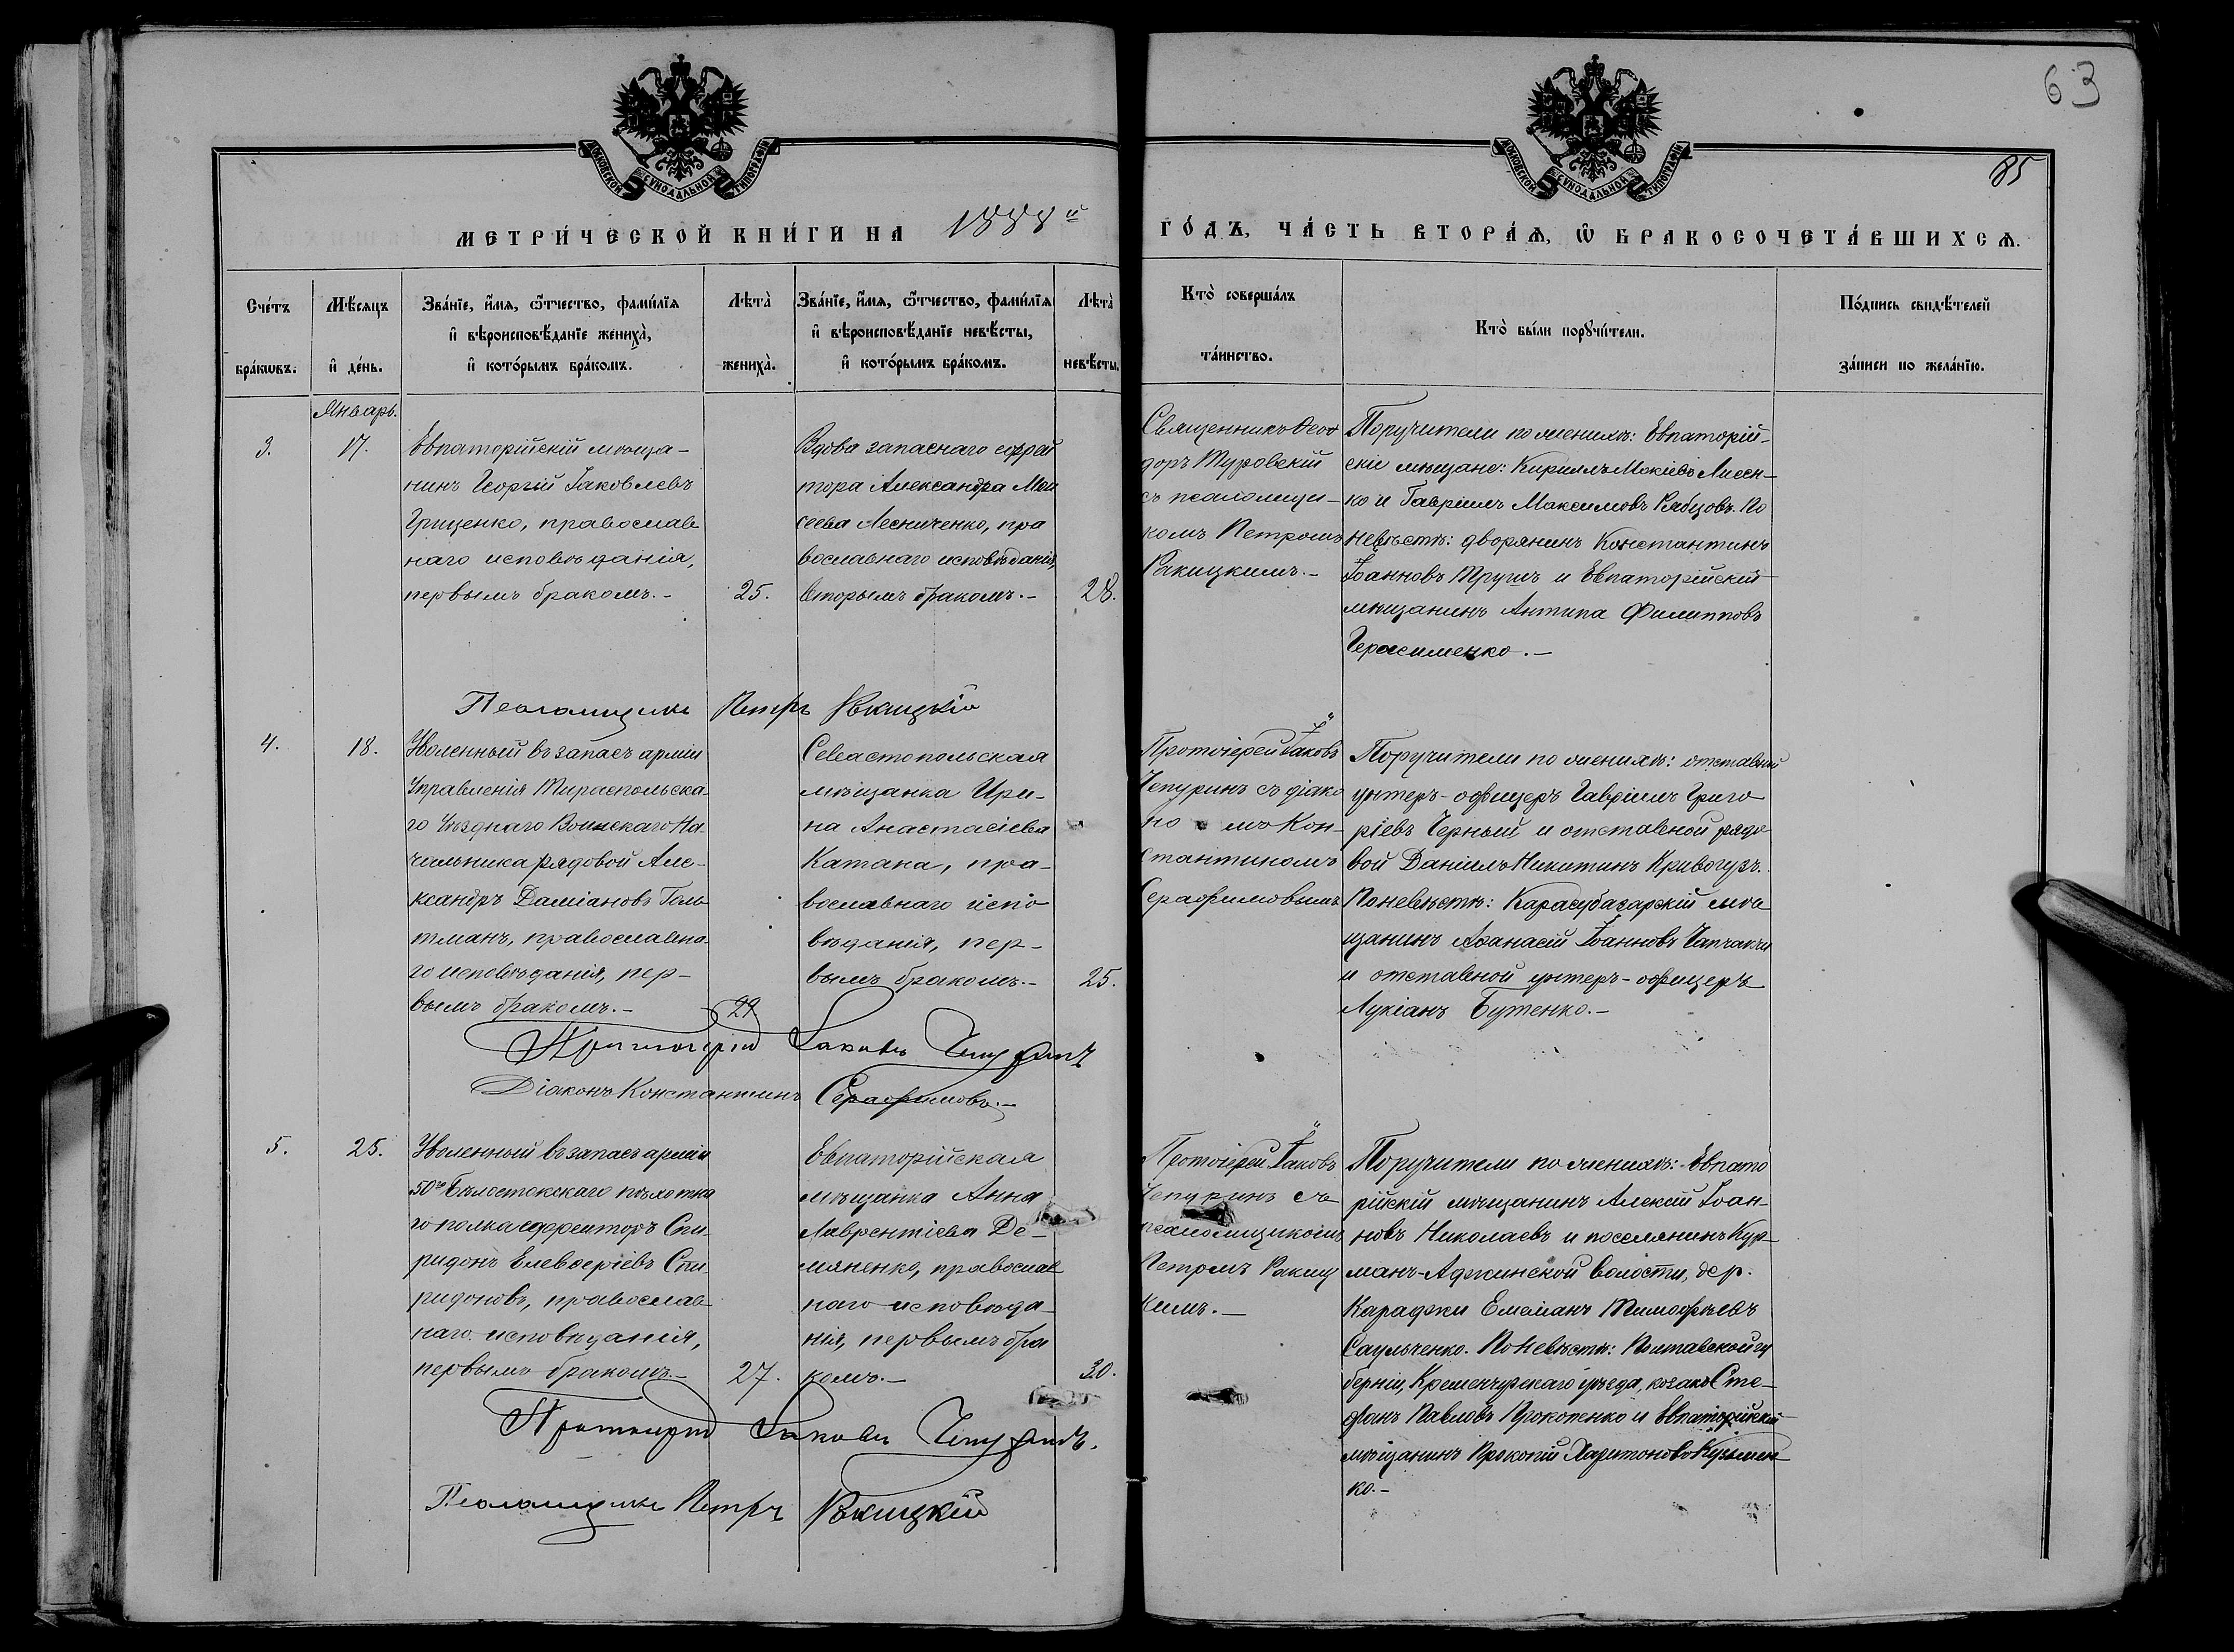 63
85
МОСКОВСКОЙ СѴНОДАЛЬНОЙ ТИПОГРАФІИ
МОСКОВСКОЙ СѴНОДАЛЬНОЙ ТИПОГРАФІИ
МЕТРИ́ЧЕСКОЙ КНИ́ГИ НА 1888й ГО́ДЪ, ЧА́СТЬ ВТОРА́Ѧ, Ѡ҆ БРАКОСОЧЕТА́ВШИХСѦ.
Сче́тъ
бра́кѡвъ.
Мѣ́сяцъ
и҆ де́нь.
Зва́нїе, и҆́мя, ѻ҆́тчество, фами́лїя
и҆ вѣроисповѣ́данїе жениха̀,
и҆ кото́рымъ бра́комъ.
Лѣта̀
жениха̀.
Зва́нїе, и҆́мя, ѻ҆́тчество, фами́лїя
и҆ вѣроисповѣ́данїе невѣ́сты,
и҆ кото́рымъ бра́комъ.
Лѣта̀
невѣ́сты.
Кто̀ соверша́лъ
та́инство.
Кто̀ бы́ли порꙋчи́тели.
По́дпись свидѣ́телей
за́писи по жела́нїю.
Январь.
3.
17.
Евпаторійскій мѣща-
нинъ Георгій Іаковлевъ
Гриценко, православ
наго исповѣданія,
первымъ бракомъ.-
25.
Вдова запаснаго ефрей
тора Александра Мои
сеева Лесниченко, пра
вославнаго исповѣданія,
вторымъ бракомъ.-
28.
Священникъ Ѳео
доръ Туровскій
съ псаломщи-
комъ Петромъ
Ракицкимъ.-
Поручители по женихѣ: Евпаторій-
скіе мѣщане: Кириллъ Мокіевъ Лисен-
ко и Гавріилъ Максимовъ Рябцовъ. По
невѣстѣ: дворянинъ Константинъ
Іоанновъ Трушъ и Евпаторійскій
мѣщанинъ Антипа Филипповъ
Герасименко.-
Псаломщикъ Петръ Ракицкій
4.
18.
Уволенный въ запасъ арміи
Управленія Тираспольска-
го Уѣзднаго Воинскаго На-
чальника рядовой Але-
ксандръ Даміановъ Голь
тманъ, православна-
го исповѣданія, пер-
вымъ бракомъ.-
29
Севастопольская
мѣщанка Ири-
на Анастасіева
Катана, пра-
вославнаго испо
вѣданія, пер-
вымъ бракомъ.-
25.
Протоіерей Іаковъ
Чепуринъ съ діако
но мъ Кон-
стантиномъ
Серафимовымъ
Поручители по женихѣ: отставной
унтеръ-офицеръ Гавріилъ Григо
ріевъ Черный и отставной рядо
вой Даніилъ Никитинъ Кривогузъ.
По невѣстѣ: Карасубазарскій мѣ
щанинъ Аѳанасій Іоанновъ Чапчакчи
и отставной унтеръ-офицеръ
Лукіанъ Бутенко.-
Протоіерей Іаковъ Чепуринъ
Діаконъ Константинъ Серафимовъ.-
5.
25.
Уволенный въ запасъ арміи
50го Бѣлостокскаго пѣхотна
го полка ефрейторъ Спи-
ридонъ Елевѳеріевъ Спи-
ридоновъ, православ-
наго исповѣданія,
первымъ бракомъ.-
27.
Евпаторійская
мѣщанка Анна
Лаврентіева Де-
мяненко, православ
наго исповѣда-
нія, первымъ бра
комъ.-
30.
Протоіерей Іаковъ
Чепуринъ съ
псаломщикомъ
Петромъ Ракиц
кимъ.-
Поручители по женихѣ: Евпато
рійскій мѣщанинъ Алексій Іоан-
новъ Николаевъ и поселянинъ Кур-
манъ-Аджинской волости, дер.
Караджи Емеліанъ Тимофѣевъ
Саульченко. По невѣстѣ: Полтавской гу
берніи, Кременчугскаго уѣзда, козакъ Сте-
фанъ Павловъ Прокопенко и Евпаторійскій
мѣщанинъ Прокопій Харитоновъ Кузьмен
ко.-
Протоіерей Іаковъ Чепуринъ.
Псаломщикъ Петръ Ракицкій